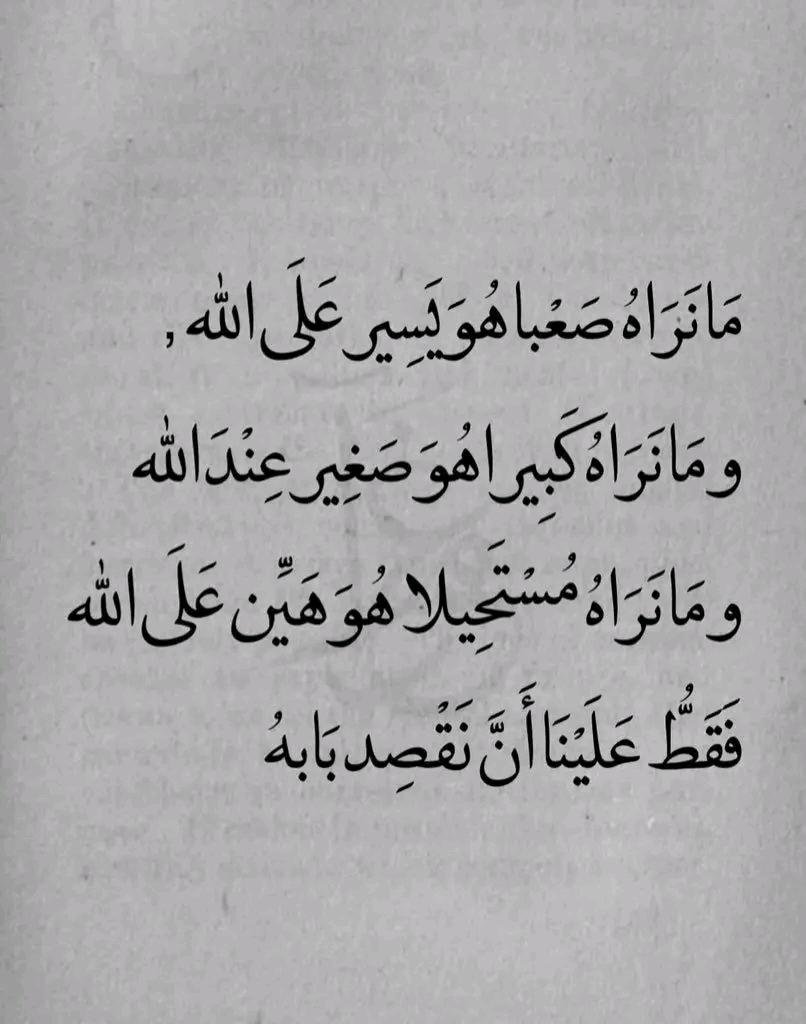 مَانَرَاهُ صَعْبا هُوَ يَسِير عَلَى الله ,
و مَا نَرَاهُ كَبِيرا هُوَ صَغِير عِنْدَ الله
و مَا نَرَاهُ مُسْتَحِيلا هُوَ هَيِّن عَلَى الله
فَقَطُّ عَلَيْنَا أَنَّ نَقْصِد بَابهُ